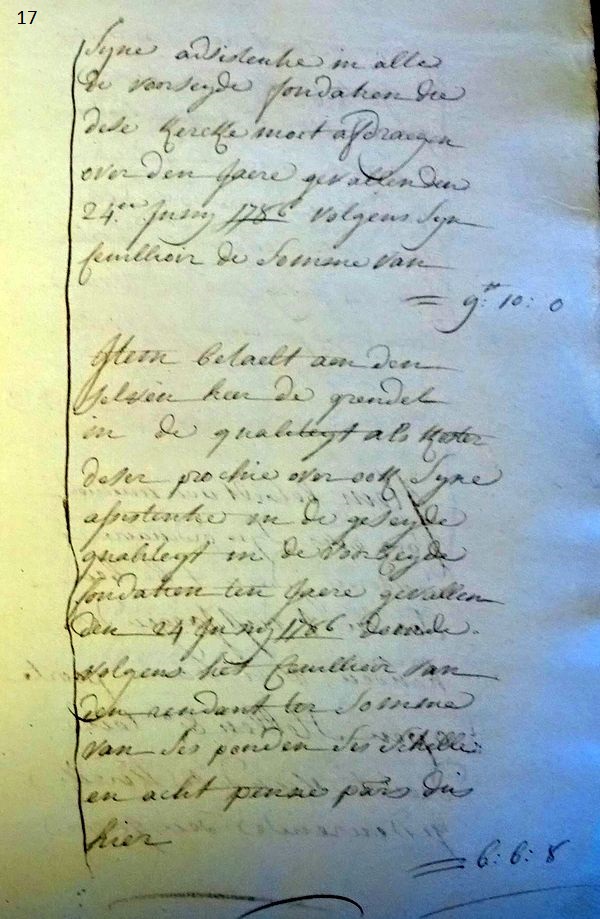 17
Syne adsistentie in alle
de voorseyde fondatien die
dese Kercke moet afdraegen
over den Jaere gevallen den
24.en Juny 1786 volgens syn
ceuillioir de Somme van
= 9: 10: 0
Item betaelt aen den
selven heer de grendel
in de qualiteyt als Koster
deser prochie over oock Syne
assistentie in de geseyde
qualiteyt in de voorseyde
fondatien ten Jaere gevallen
den 24.e Juny 1786
volgens het ceuillioir van
den rendant ter Somme
van ses ponden ses schelle
en acht penne pars dus
hier
= 6: 6: 8